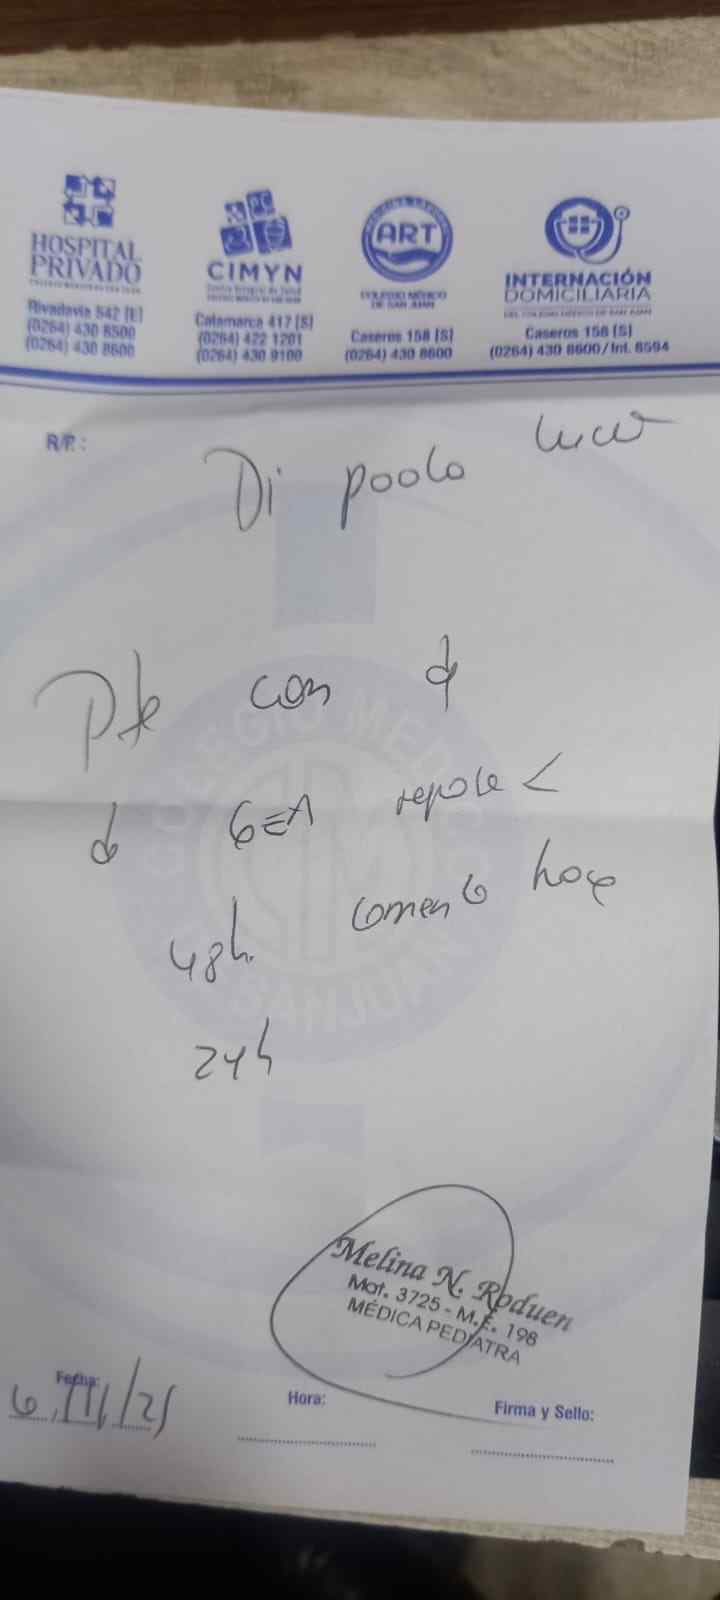 HOSPITAL PRIVADO
Rivadavia 542 [E]
(0264) 430 8500
(0264) 430 8600
CIMYN
Catamarca 417 [S]
(0264) 422 1201
(0264) 430 9100
ART
COLEGIO MÉDICO DE SAN JUAN
Caseros 158 [S]
(0264) 430 8600
INTERNACIÓN DOMICILIARIA
DEL COLEGIO MÉDICO DE SAN JUAN
Caseros 158 [S]
(0264) 430 8600/Int. 8594
R/P.:
Di paolo
Pte con d
d GEA <
48h. comento hoy
24h
COLEGIO MEDICO
SAN JUAN
Melina N. Roduen
Mat. 3725 - M.E. 198
MÉDICA PEDIATRA
Fecha:
Hora:
Firma y Sello: